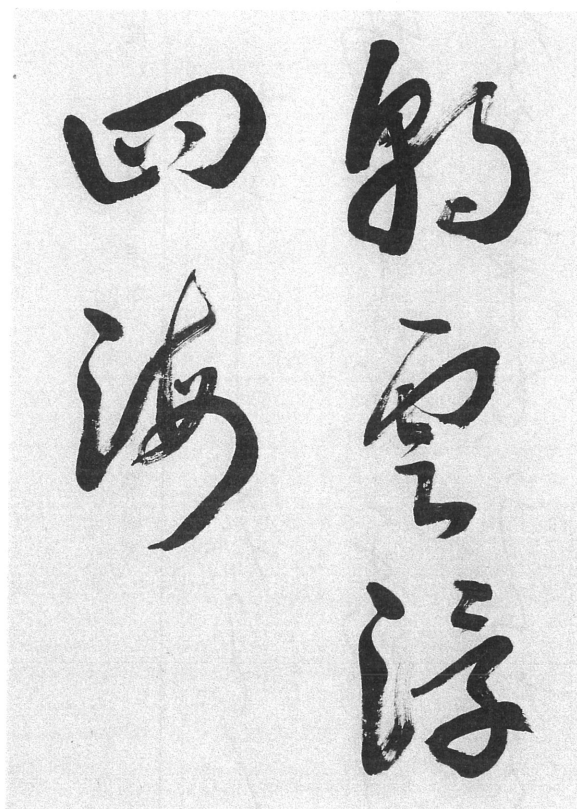 朝雲浮
四海